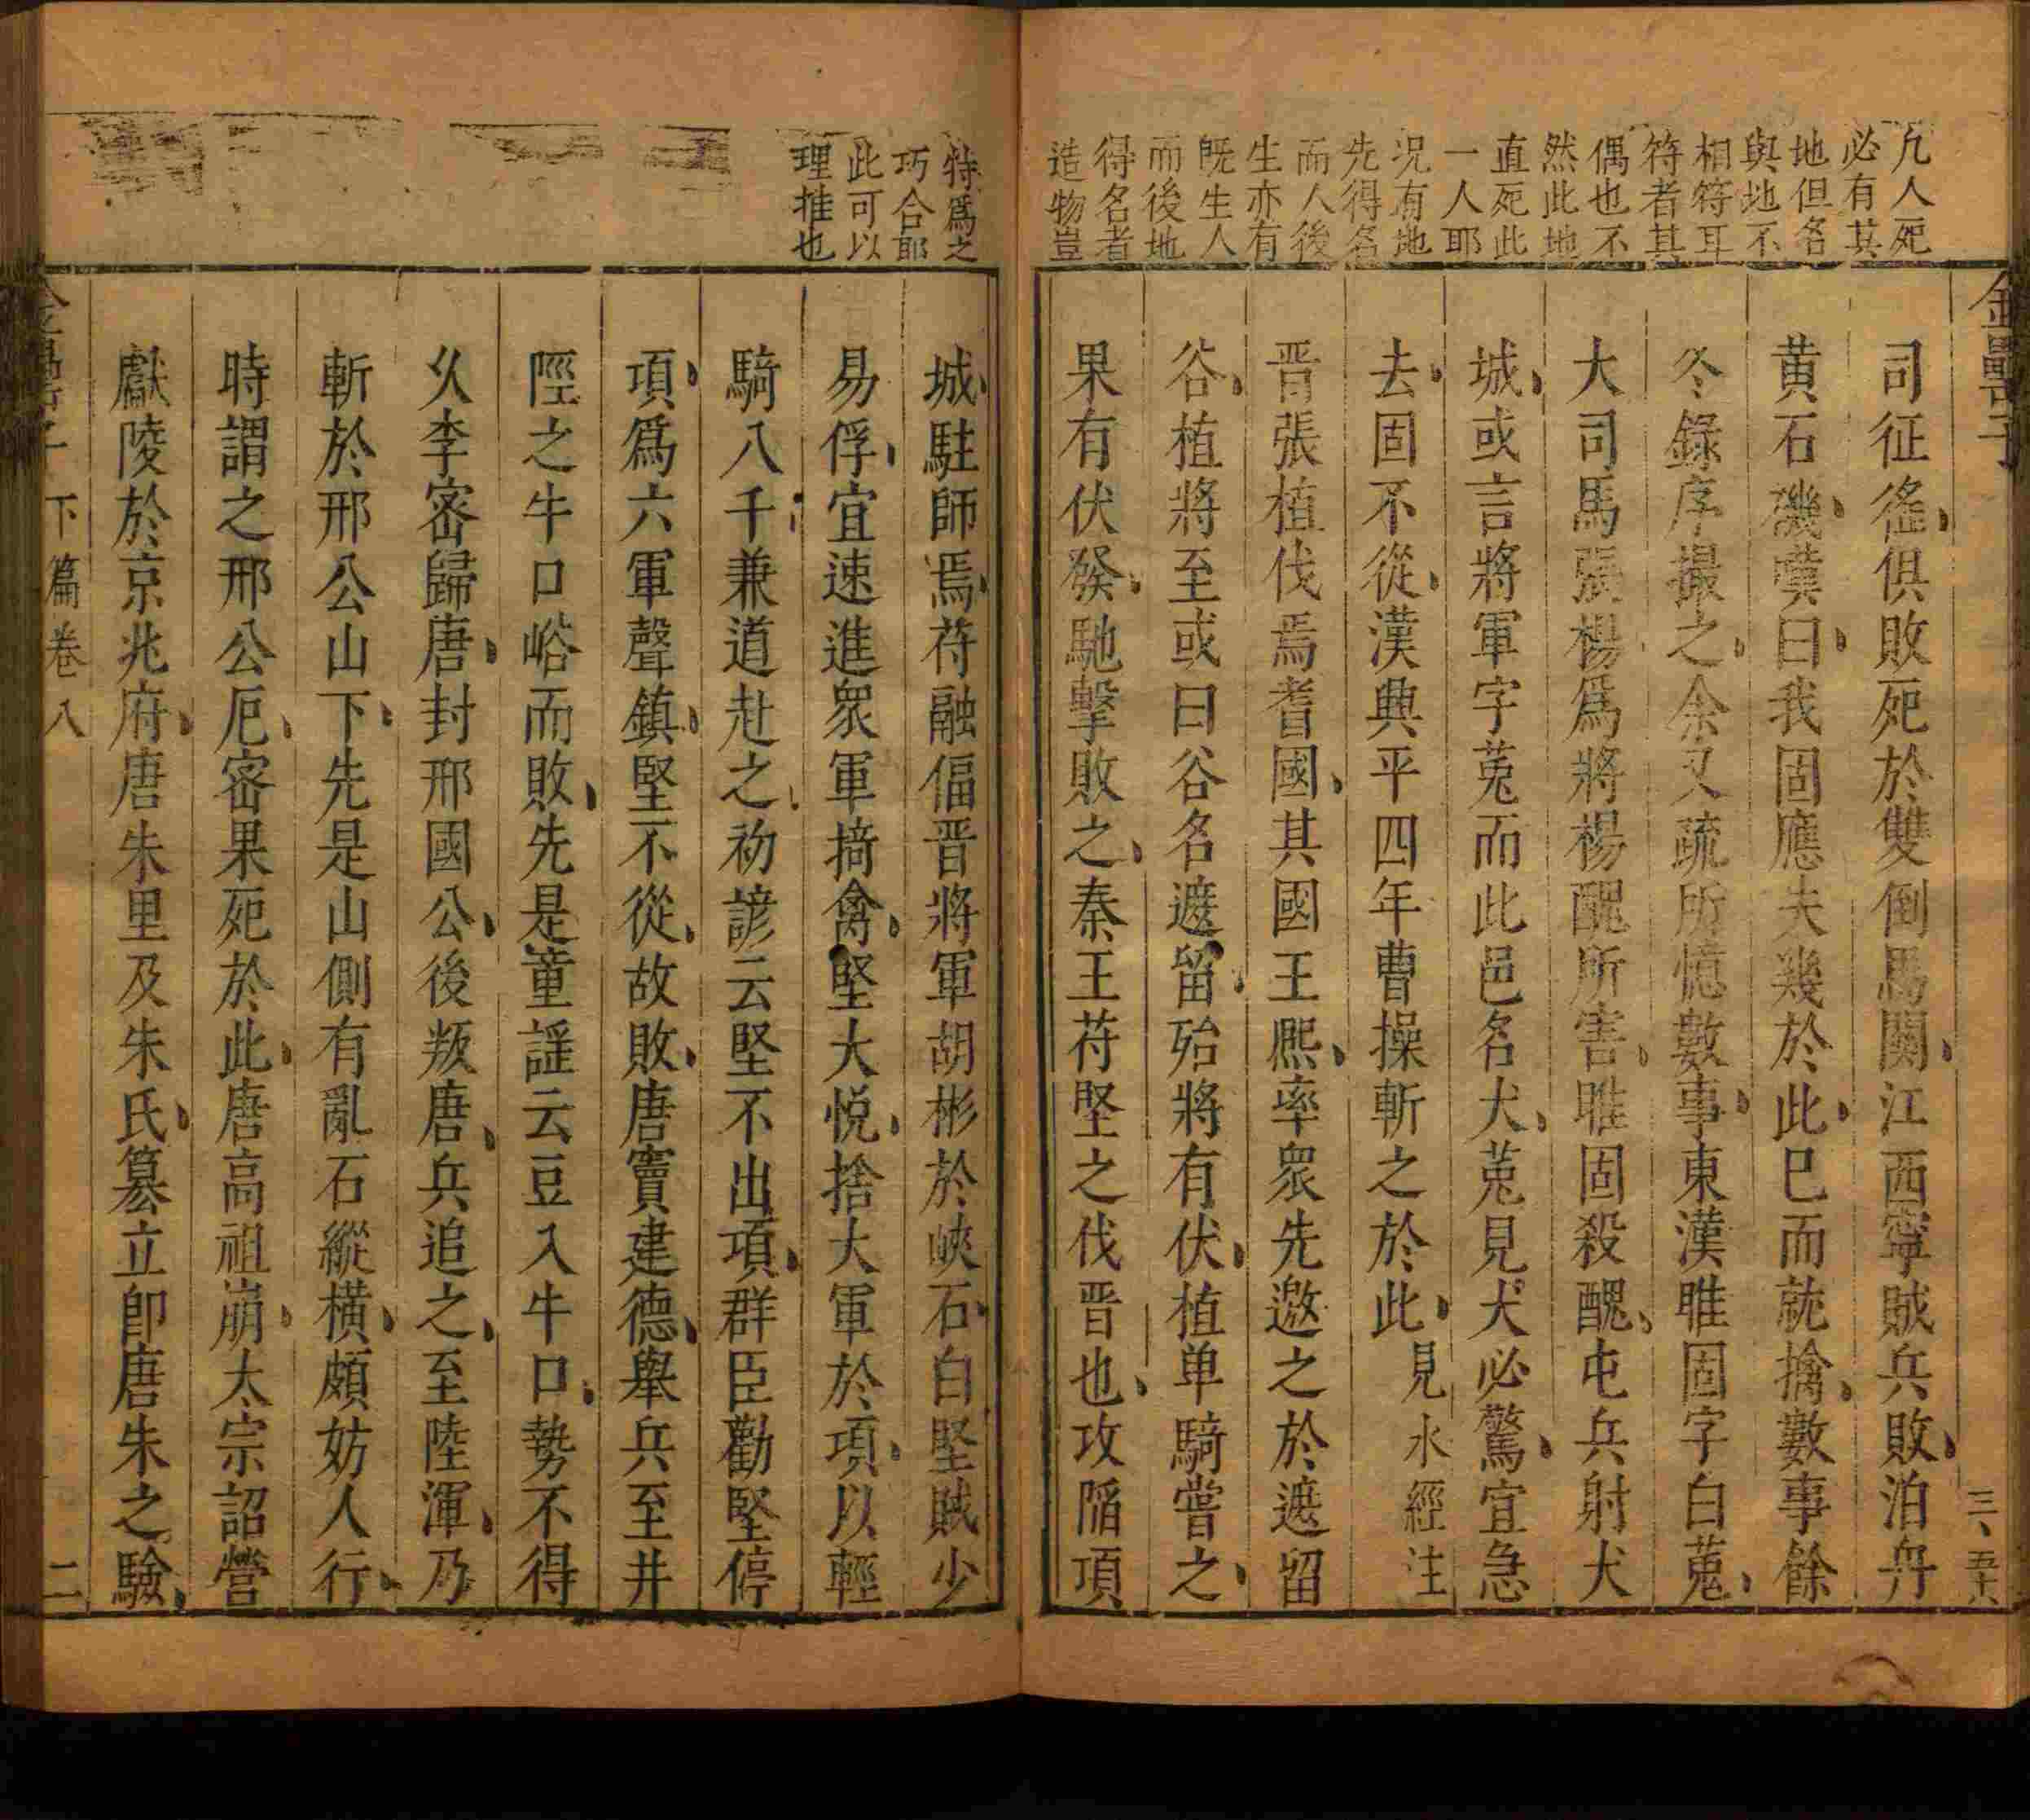 金罍子
凡人死
必有其
地但各
與地不
相符耳
符者其
偶也不
然此地
直死此
一人耶
況有地
先得名
而人後
生亦有
既生人
而後地
得名者
造物豈
司征徭俱敗死於雙倒馬關江西寧賊兵敗泊舟
黃石磯嘆曰我固應夫幾於此已而就擒數事餘
冬錄序撮之余又疏所憶數事東漢眭固字白菟
大司馬張楊為將楊醜所害眭固殺醜屯兵射犬
城或言將軍字菟而此邑名犬菟見犬必驚宜急
去固不從漢興平四年曹操斬之於此見水經注
晉張植伐焉耆國其國王熙率眾先邀之於遮留
谷植將至或曰谷名遮留殆將有伏植单騎嘗之
果有伏發馳擊敗之秦王苻堅之伐晉也攻陷項
特爲之
巧合耶
此可以
理推也
城駐師焉苻融偪晉將軍胡彬於峽石白堅賊少
易俘宜速進眾軍掎禽堅大悅捨大軍於項以輕
騎八千兼道赴之初諺云堅不出項群臣勸堅停
項爲六軍聲鎮堅不從故敗唐竇建德舉兵至井
陘之牛口峪而敗先是童謡云豆入牛口勢不得
乆李密歸唐封邢國公後叛唐兵追之至陸渾乃
斬於邢公山下先是山側有亂石縱橫頗妨人行
時謂之邢公厄密果死於此唐高祖崩太宗詔營
獻陵於京兆府唐朱里及朱氏篡立卽唐朱之驗
下篇卷八
二